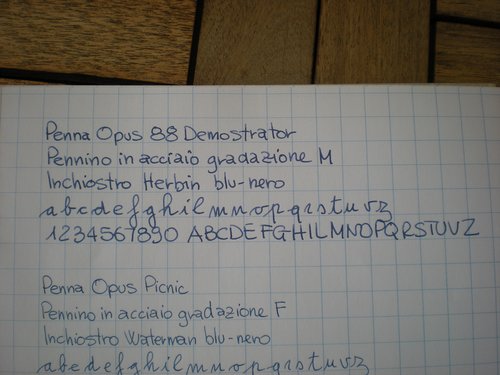 Penna Opus 88 Demostrator
Pennino in acciaio gradazione M
Inchiostro Herbin blu-nero
abcdefghilmnopqrstuvz
1234567890 ABCDEFGHILMNOPQRSTUVZ
Penna Opus Picnic
Pennino in acciaio gradazione F
Inchiostro Waterman blu-nero
abcdefghilmnopqrstuvz